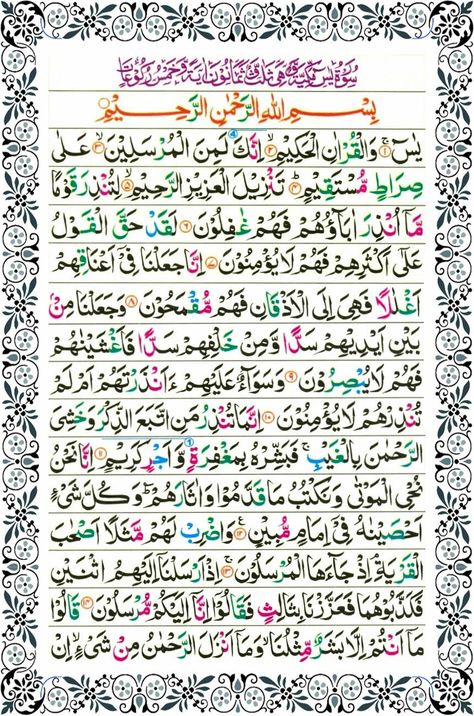 سُوْرَةُ يٰسٓ مَكِّيَّةٌ وَّهِىَ ثَلٰثٌ وَّثَمَانُوْنَ اٰيَةً وَّخَمْسُ رُكُوْعَاتٍ
بِسْمِ اللّٰهِ الرَّحْمٰنِ الرَّحِيْمِ
يٰسٓ ۝١ وَالْقُرْاٰنِ الْحَكِيْمِ ۝٢ اِنَّكَ لَمِنَ الْمُرْسَلِيْنَ ۝٣ عَلٰى
صِرَاطٍ مُّسْتَقِيْمٍ ۝٤ تَنْزِيْلَ الْعَزِيْزِ الرَّحِيْمِ ۝٥ لِتُنْذِرَ قَوْمًا
مَّآ اُنْذِرَ اٰبَآؤُهُمْ فَهُمْ غٰفِلُوْنَ ۝٦ لَقَدْ حَقَّ الْقَوْلُ
عَلٰٓى اَكْثَرِهِمْ فَهُمْ لَا يُؤْمِنُوْنَ ۝٧ اِنَّا جَعَلْنَا فِىْٓ اَعْنَاقِهِمْ
اَغْلٰلًا فَهِىَ اِلَى الْاَذْقَانِ فَهُمْ مُّقْمَحُوْنَ ۝٨ وَجَعَلْنَا مِنْۢ
بَيْنِ اَيْدِيْهِمْ سَدًّا وَّمِنْ خَلْفِهِمْ سَدًّا فَاَغْشَيْنٰهُمْ
فَهُمْ لَا يُبْصِرُوْنَ ۝٩ وَسَوَآءٌ عَلَيْهِمْ ءَاَنْذَرْتَهُمْ اَمْ لَمْ
تُنْذِرْهُمْ لَا يُؤْمِنُوْنَ ۝١٠ اِنَّمَا تُنْذِرُ مَنِ اتَّبَعَ الذِّكْرَ وَخَشِىَ
الرَّحْمٰنَ بِالْغَيْبِ ۚ فَبَشِّرْهُ بِمَغْفِرَةٍ وَّاَجْرٍ كَرِيْمٍ ۝١١ اِنَّا نَحْنُ
نُحْىِ الْمَوْتٰى وَنَكْتُبُ مَا قَدَّمُوْا وَاٰثَارَهُمْ ؕ وَكُلَّ شَىْءٍ
اَحْصَيْنٰهُ فِىْٓ اِمَامٍ مُّبِيْنٍ ۝١٢ وَاضْرِبْ لَهُمْ مَّثَلًا اَصْحٰبَ
الْقَرْيَةِ ۘ اِذْ جَآءَهَا الْمُرْسَلُوْنَ ۝١٣ اِذْ اَرْسَلْنَآ اِلَيْهِمُ اثْنَيْنِ
فَكَذَّبُوْهُمَا فَعَزَّزْنَا بِثَالِثٍ فَقَالُوْٓا اِنَّآ اِلَيْكُمْ مُّرْسَلُوْنَ ۝١٤ قَالُوْا
مَآ اَنْتُمْ اِلَّا بَشَرٌ مِّثْلُنَا ۙ وَمَآ اَنْزَلَ الرَّحْمٰنُ مِنْ شَىْءٍ ۙ اِنْ